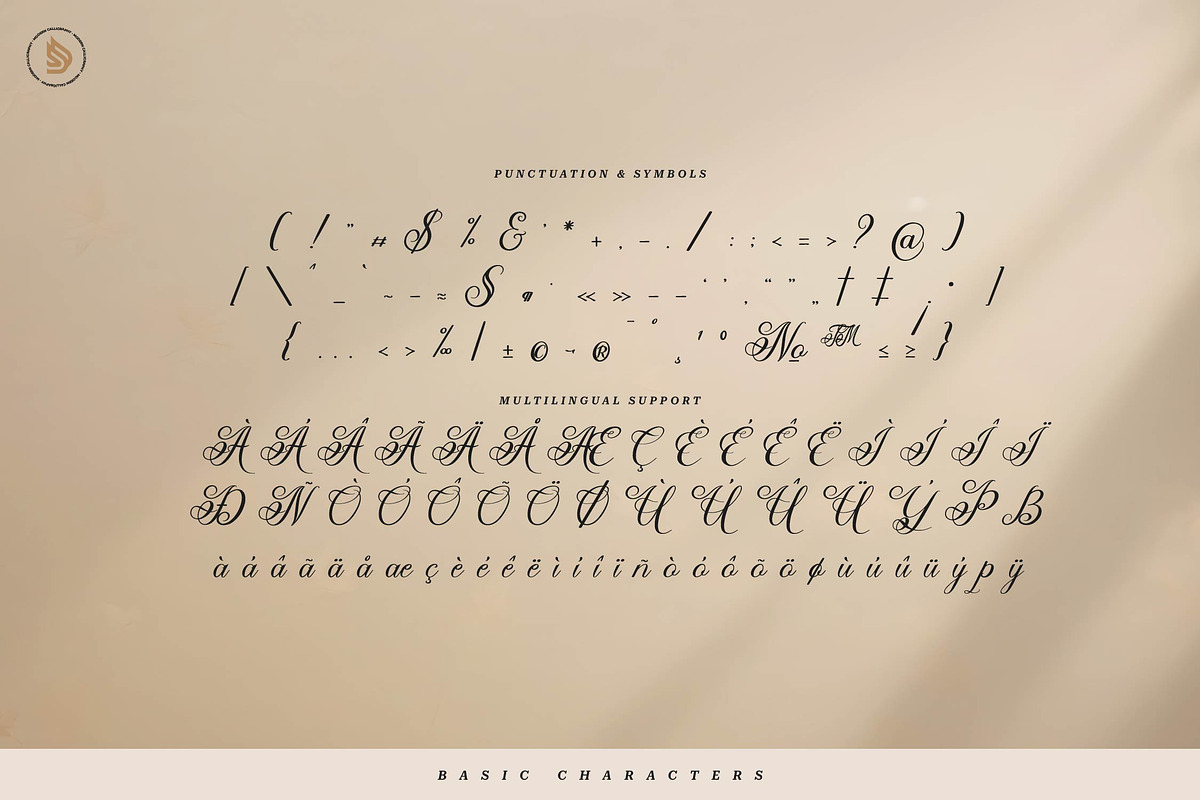 PUNCTUATION & SYMBOLS
( ! " # $ % & ' * + , – . / : ; < = > ? @ )
[ \ ^ _ ` ~ – ≈ S ¶ · « » – – ‘ ’ ‚ “ ” „ † ‡ . • ]
{ ... < > ‰ | ± © ¬ ® ¯ ° ¸ ¹ º № ™ ≤ ≥ / }
MULTILINGUAL SUPPORT
À Á Â Ã Ä Å Æ Ç È É Ê Ë Ì Í Î Ï
Ð Ñ Ò Ó Ô Õ Ö Ø Ù Ú Û Ü Ý Þ ß
à á â ã ä å æ ç è é ê ë ì í î ï ñ ò ó ô õ ö ø ù ú û ü ý þ ÿ
BASIC CHARACTERS